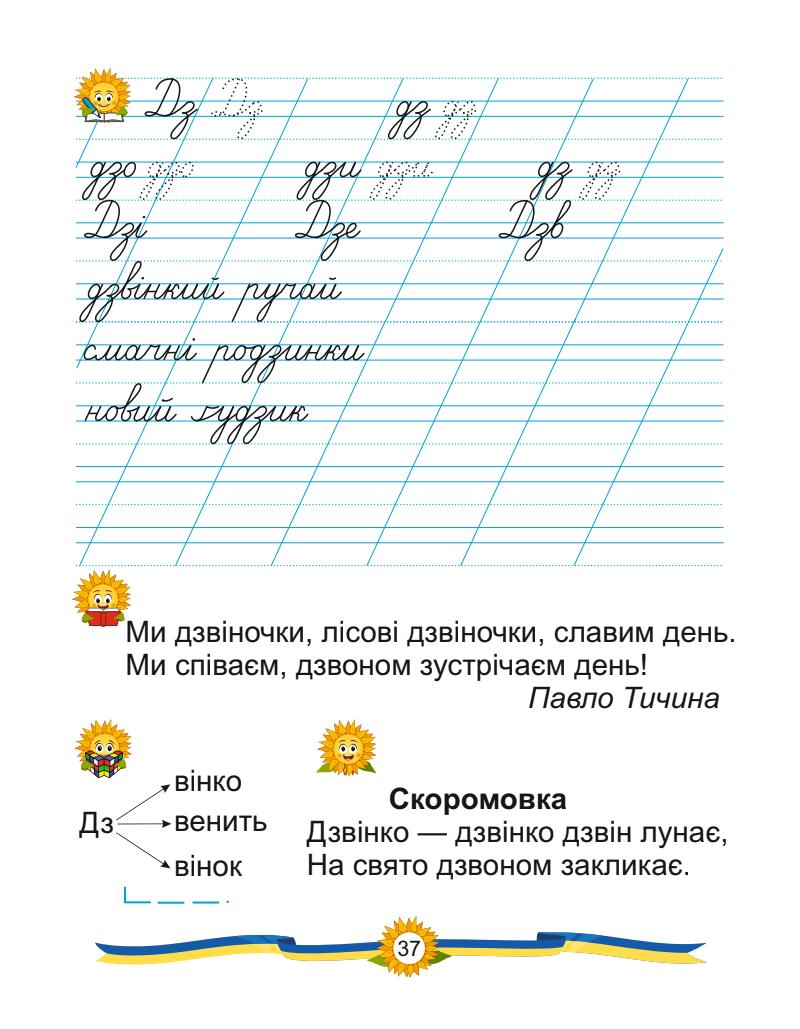 Дз Дз дз дз
дзо дзо дзи дзи дз дз
Дзі Дзе Дзв
дзвінкий ручай
смачні родзинки
новий ґудзик
Ми дзвіночки, лісові дзвіночки, славим день.
Ми співаєм, дзвоном зустрічаєм день!
Павло Тичина
Дз
вінко
венить
вінок
Скоромовка
Дзвінко — дзвінко дзвін лунає,
На свято дзвоном закликає.
37